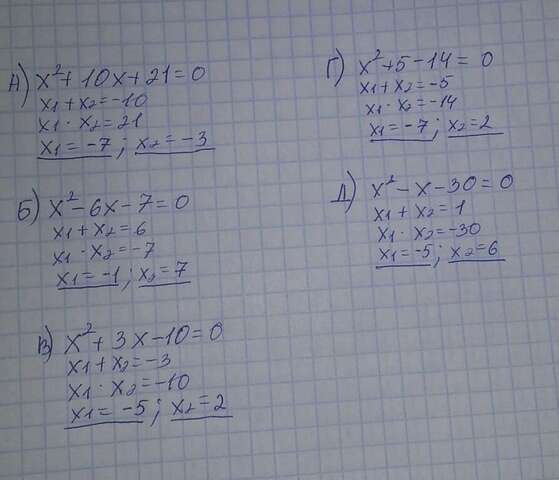 А) x² + 10x + 21 = 0
x1 + x2 = -10
x1 · x2 = 21
x1 = -7 ; x2 = -3
Б) x² - 6x - 7 = 0
x1 + x2 = 6
x1 · x2 = -7
x1 = -1 ; x2 = 7
В) x² + 3x - 10 = 0
x1 + x2 = -3
x1 · x2 = -10
x1 = -5 ; x2 = 2
Г) x² + 5 - 14 = 0
x1 + x2 = -5
x1 · x2 = -14
x1 = -7 ; x2 = 2
Д) x² - x - 30 = 0
x1 + x2 = 1
x1 · x2 = -30
x1 = -5 ; x2 = 6